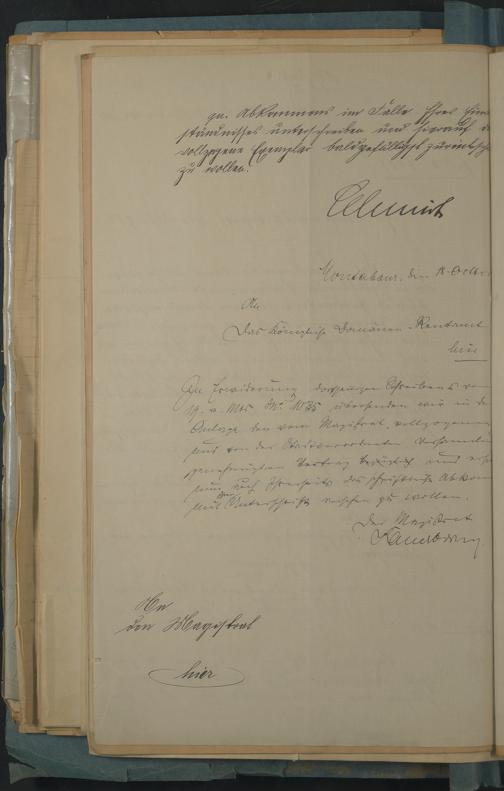 gen. Abkommens im Falle Ihres Einver
ständnisses unterschreiben und hierauf
vollzogene Exemplar baldgefälligst zurück
zu wollen.
Montabaur, den 18. Octo
An
Das Königliche Domänen-Rentamt
hier
In Erwiderung Schreibens vom
19. v. Mts № 1035 übersenden wir in der
Anlage den vom Magistrat vollzogenen
und von der Stadtverordneten Versamml
genehmigten Vertrag und
nun auch Ihrerseits das Abkom
mit Unterschrift versehen zu wollen.
Der Magistrat
An
den Magistrat
hier